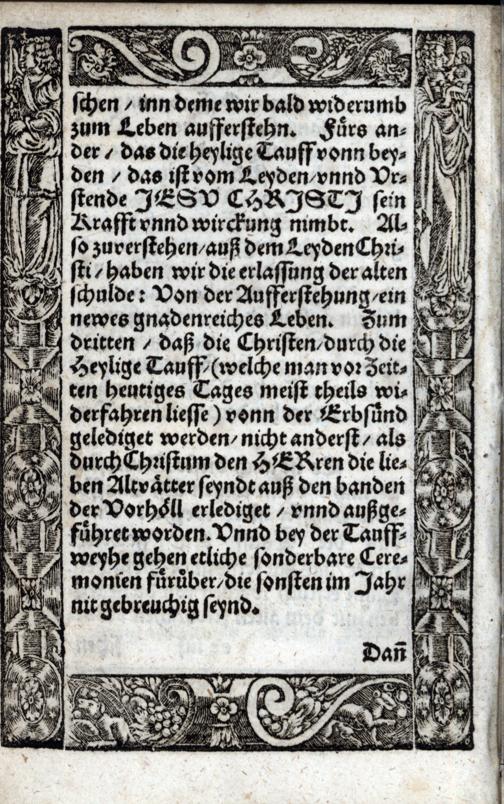 schen / inn deme wir bald widerumb
zum Leben aufferstehn. Fürs an-
der / das die heylige Tauff vonn bey-
den / das ist vom Leyden / vnnd Vr-
stende JESV CHRISTI sein
Krafft vnnd wirckung nimbt. Al-
so zuverstehen / auß dem Leyden Chri-
sti / haben wir die erlassung der alten
schulde: Von der Aufferstehung / ein
newes gnadenreiches Leben. Zum
dritten / daß die Christen / durch die
Heylige Tauff / (welche man vor Zeit-
ten heutiges Tages meist theils wi-
derfahren liesse) vonn der Erbsünd
gelediget werden / nicht anderst / als
durch Christum den HERren die lie-
ben Altvätter seyndt auß den banden
der Vorhöll erlediget / vnnd außge-
führet worden. Vnnd bey der Tauff-
weyhe gehen etliche sonderbare Cere-
monien fürüber / die sonsten im Jahr
nit gebreuchig seynd.
Dañ